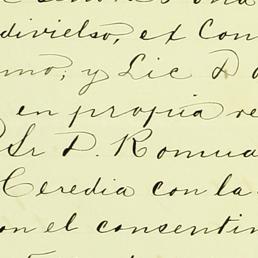 divielso, ex Con
mo, y Lic D
en propia re
Sr D. Romua
Heredia con la
on el consentin